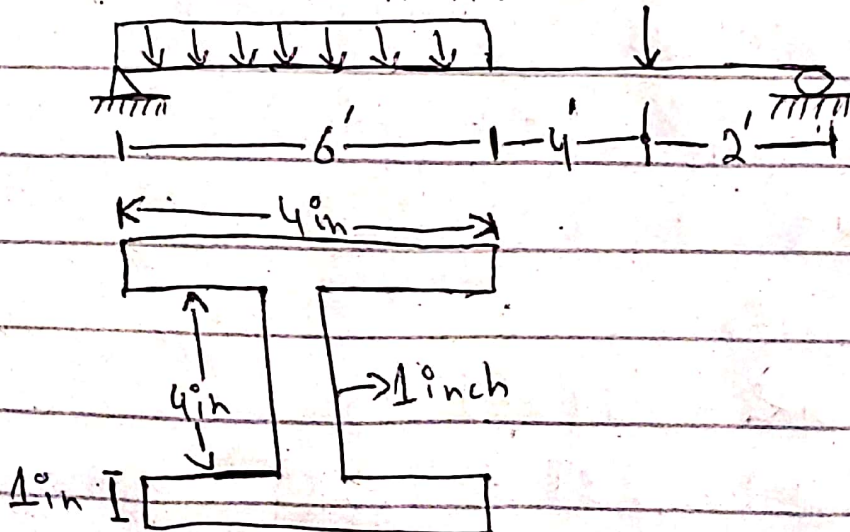 6' 4' 2'
4in
4in
1inch
1in